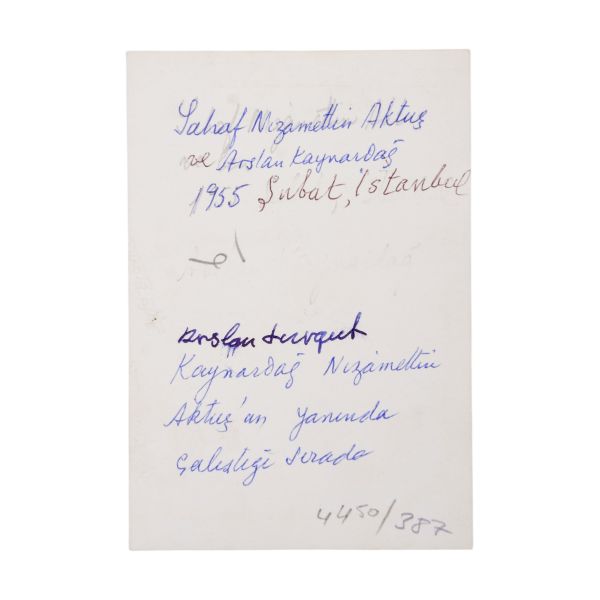 Sahaf Nizamettin Aktuç
ve Arslan Kaynardağ
1955 Şubat, İstanbul
Arslan Turgut
Kaynardağ Nizamettin
Aktuç'an yanında
Çalıştığı sırada
4450/387